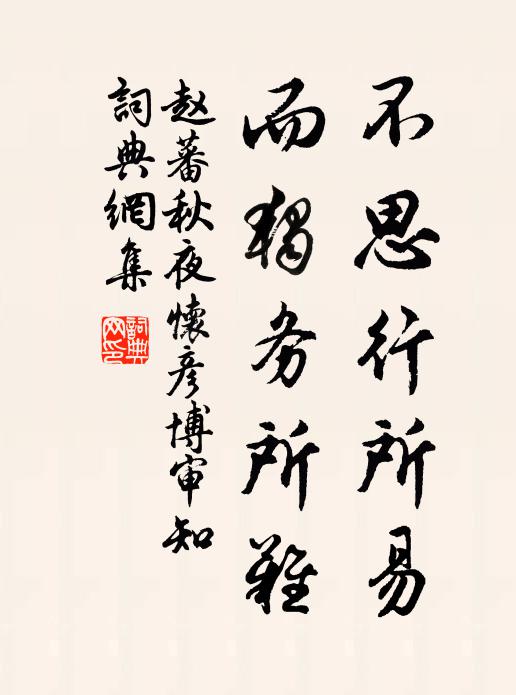 不思行所易
而獨务所難
赵蕃秋夜懷彦博审知
詞典網集
詞典网印